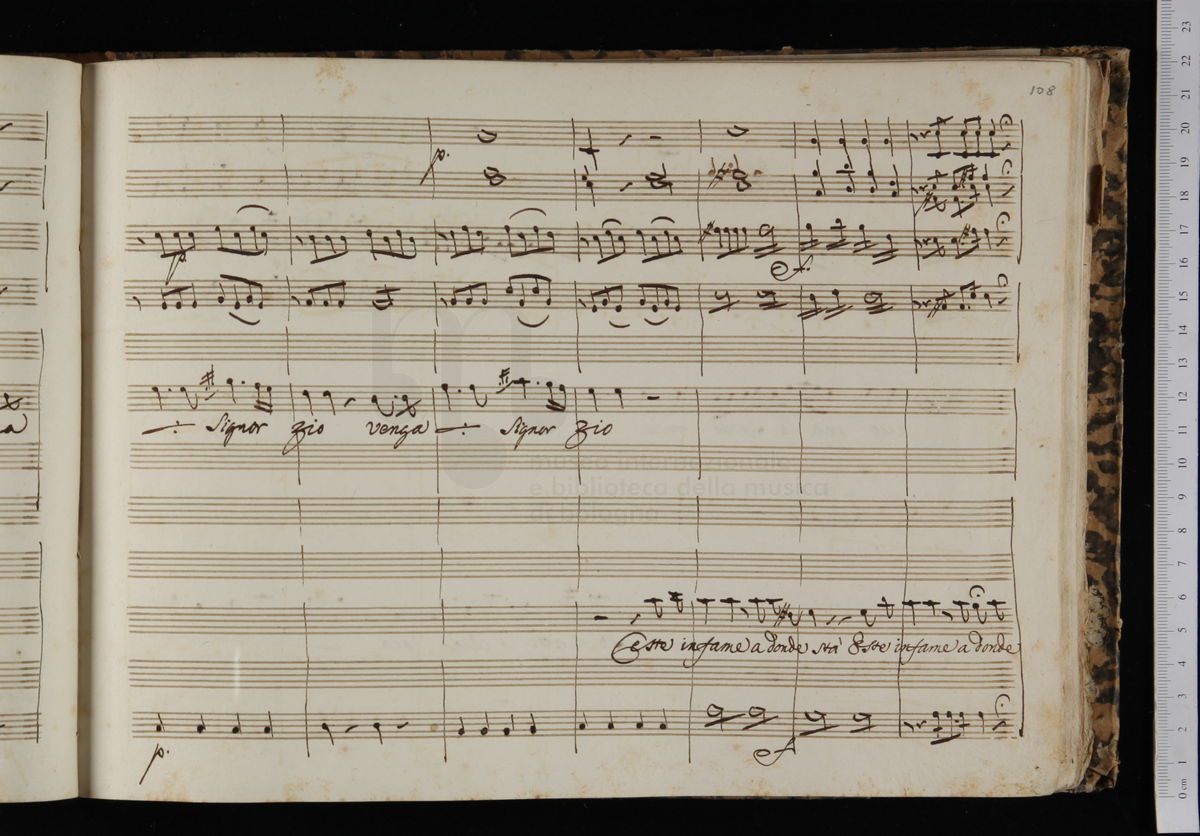 108
p.
p
f.
Signor zio venga Signor zio
a
museo internazionale
e biblioteca della musica
di bologna
Este infame a donde stà Este infame a donde
p.
f
23
22
21
20
19
18
17
16
15
14
13
12
11
10
9
8
7
6
5
4
3
2
1
0 cm